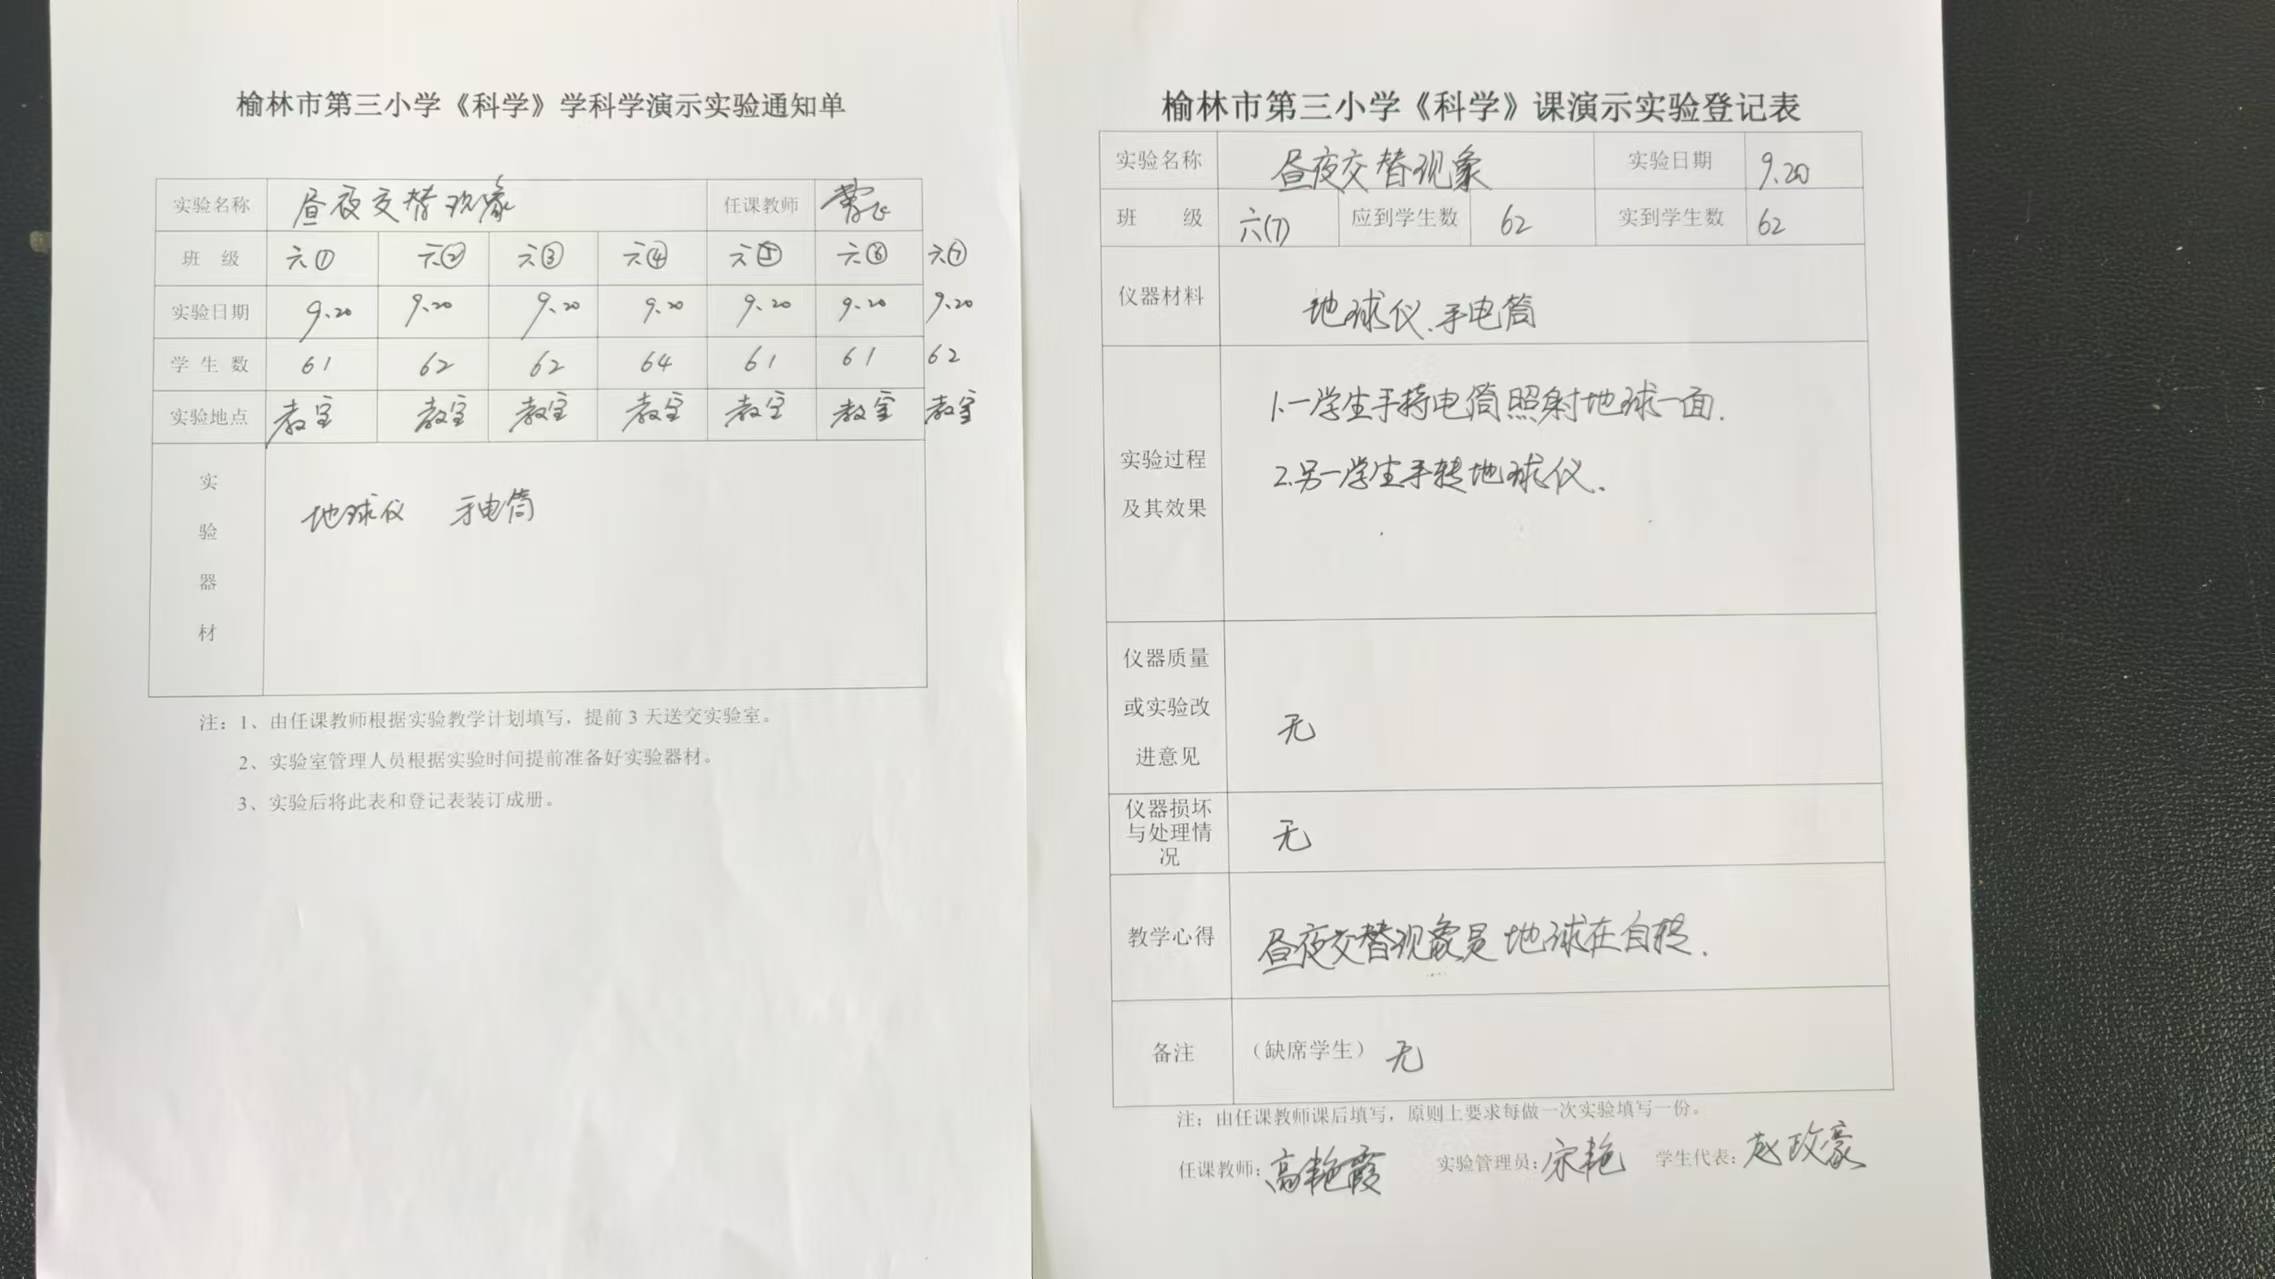 榆林市第三小学《科学》学科学演示实验通知单
实验名称 昼夜交替现象 任课教师
班 级 六① 六② 六③ 六④ 六⑤ 六⑥ 六⑦
实验日期 9.20 9.20 9.20 9.20 9.20 9.20 9.20
学 生 数 61 62 62 64 61 61 62
实验地点 教室 教室 教室 教室 教室 教室 教室
实验器材 地球仪 手电筒
注：1、由任课教师根据实验教学计划填写，提前3天送交实验室。
2、实验室管理人员根据实验时间提前准备好实验器材。
3、实验后将此表和登记表装订成册。
榆林市第三小学《科学》课演示实验登记表
实验名称 昼夜交替现象 实验日期 9.20
班 级 六(7) 应到学生数 62 实到学生数 62
仪器材料 地球仪、手电筒
实验过程及其效果
1.一学生手持电筒照射地球一面.
2.另一学生手转地球仪.
仪器质量或实验改进意见 无
仪器损坏与处理情况 无
教学心得 昼夜交替现象是地球在自转.
备注 （缺席学生） 无
注：由任课教师课后填写，原则上要求每做一次实验填写一份。
任课教师：高艳霞 实验管理员：宋艳 学生代表：赵玫豪